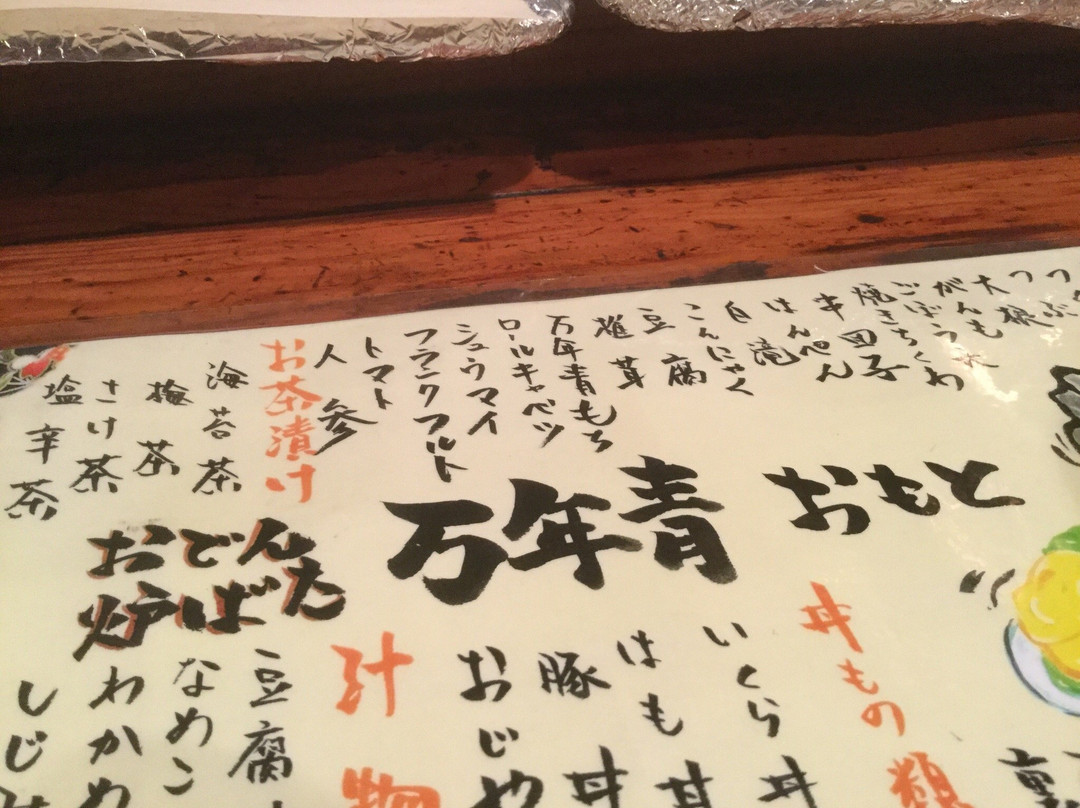 つぶ
つ
大根
がんも
ごぼう天
焼きちくわ
串団子
はんぺん
白滝
こんにゃく
豆腐
椎茸
万年青もち
ロールキャベツ
シュウマイ
フランクフルト
トマト
人参
お茶漬け
海苔茶
梅茶
さけ茶
塩辛茶
万年青 おもと
おでん
炉ばた
丼もの類
いくら丼
はも丼
豚丼
おじや
汁物
豆腐
なめこ
わかめ
しじ